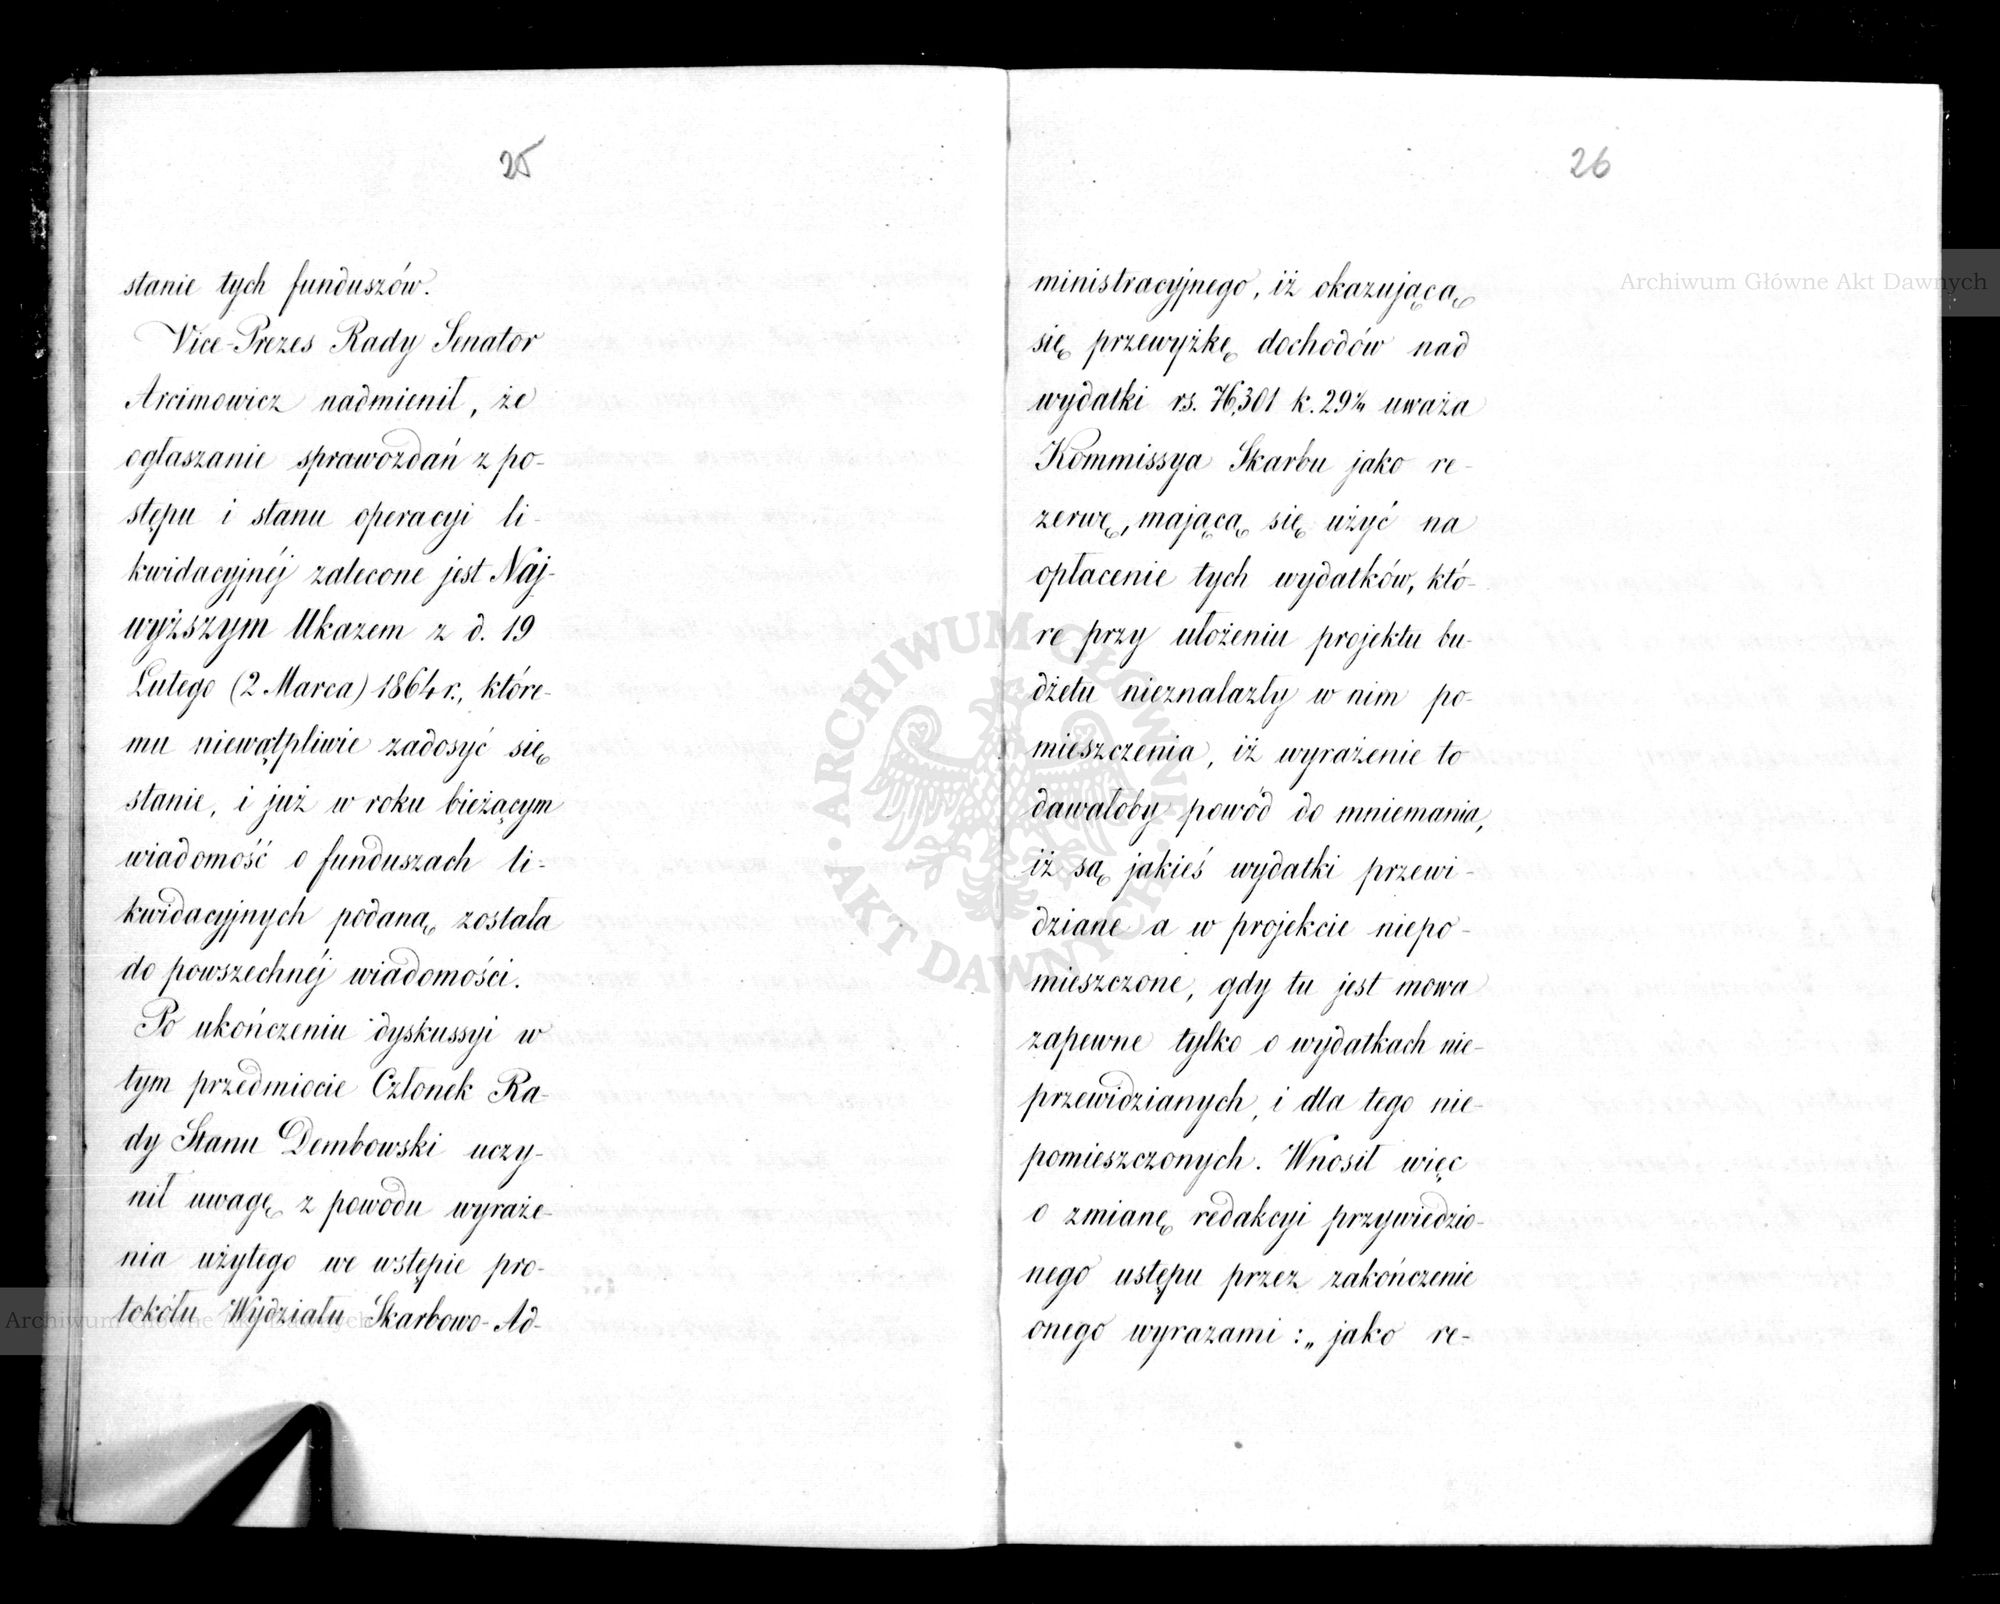 25
stanie tych funduszów.
Vice-Prezes Rady Senator
Arcimowicz nadmienił, że
ogłaszanie sprawozdań z po-
stępu i stanu operacyi li-
kwidacyjnéj zalecone jest Naj-
wyższym Ukazem z d. 19
Lutego (2 Marca) 1864 r., które-
mu niewątpliwie zadosyć się
stanie, i już w roku bieżącym
wiadomość o funduszach li-
kwidacyjnych podaną została
do powszechnéj wiadomości.
Po ukończeniu dyskussyi w
tym przedmiocie Członek Ra-
dy Stanu Dembowski uczy-
nił uwagę z powodu wyraże-
nia użytego we wstępie pro-
tokółu Wydziału Skarbowo-Ad-
26
ministracyjnego, iż okazującą
się przewyżkę dochodów nad
wydatki rs. 76,301 k. 29 uważa
Kommissya Skarbu jako re-
zerwę, mającą się użyć na
opłacenie tych wydatków, któ-
re przy ułożeniu projektu bu-
dżetu nieznalazły w nim po-
mieszczenia, iż wyrażenie to
dawałoby powód do mniemania,
iż są jakieś wydatki przewi-
dziane a w projekcie niepo-
mieszczone, gdy tu jest mowa
zapewne tylko o wydatkach nie-
przewidzianych, i dla tego nie-
pomieszczonych. Wnosił więc
o zmianę redakcyi przywiedzio-
nego ustępu przez zakończenie
onego wyrazami: „jako re-
Archiwum Główne Akt Dawnych
Archiwum Główne Akt Dawnych
ARCHIWUM GŁÓWNE · AKT DAWNYCH ·